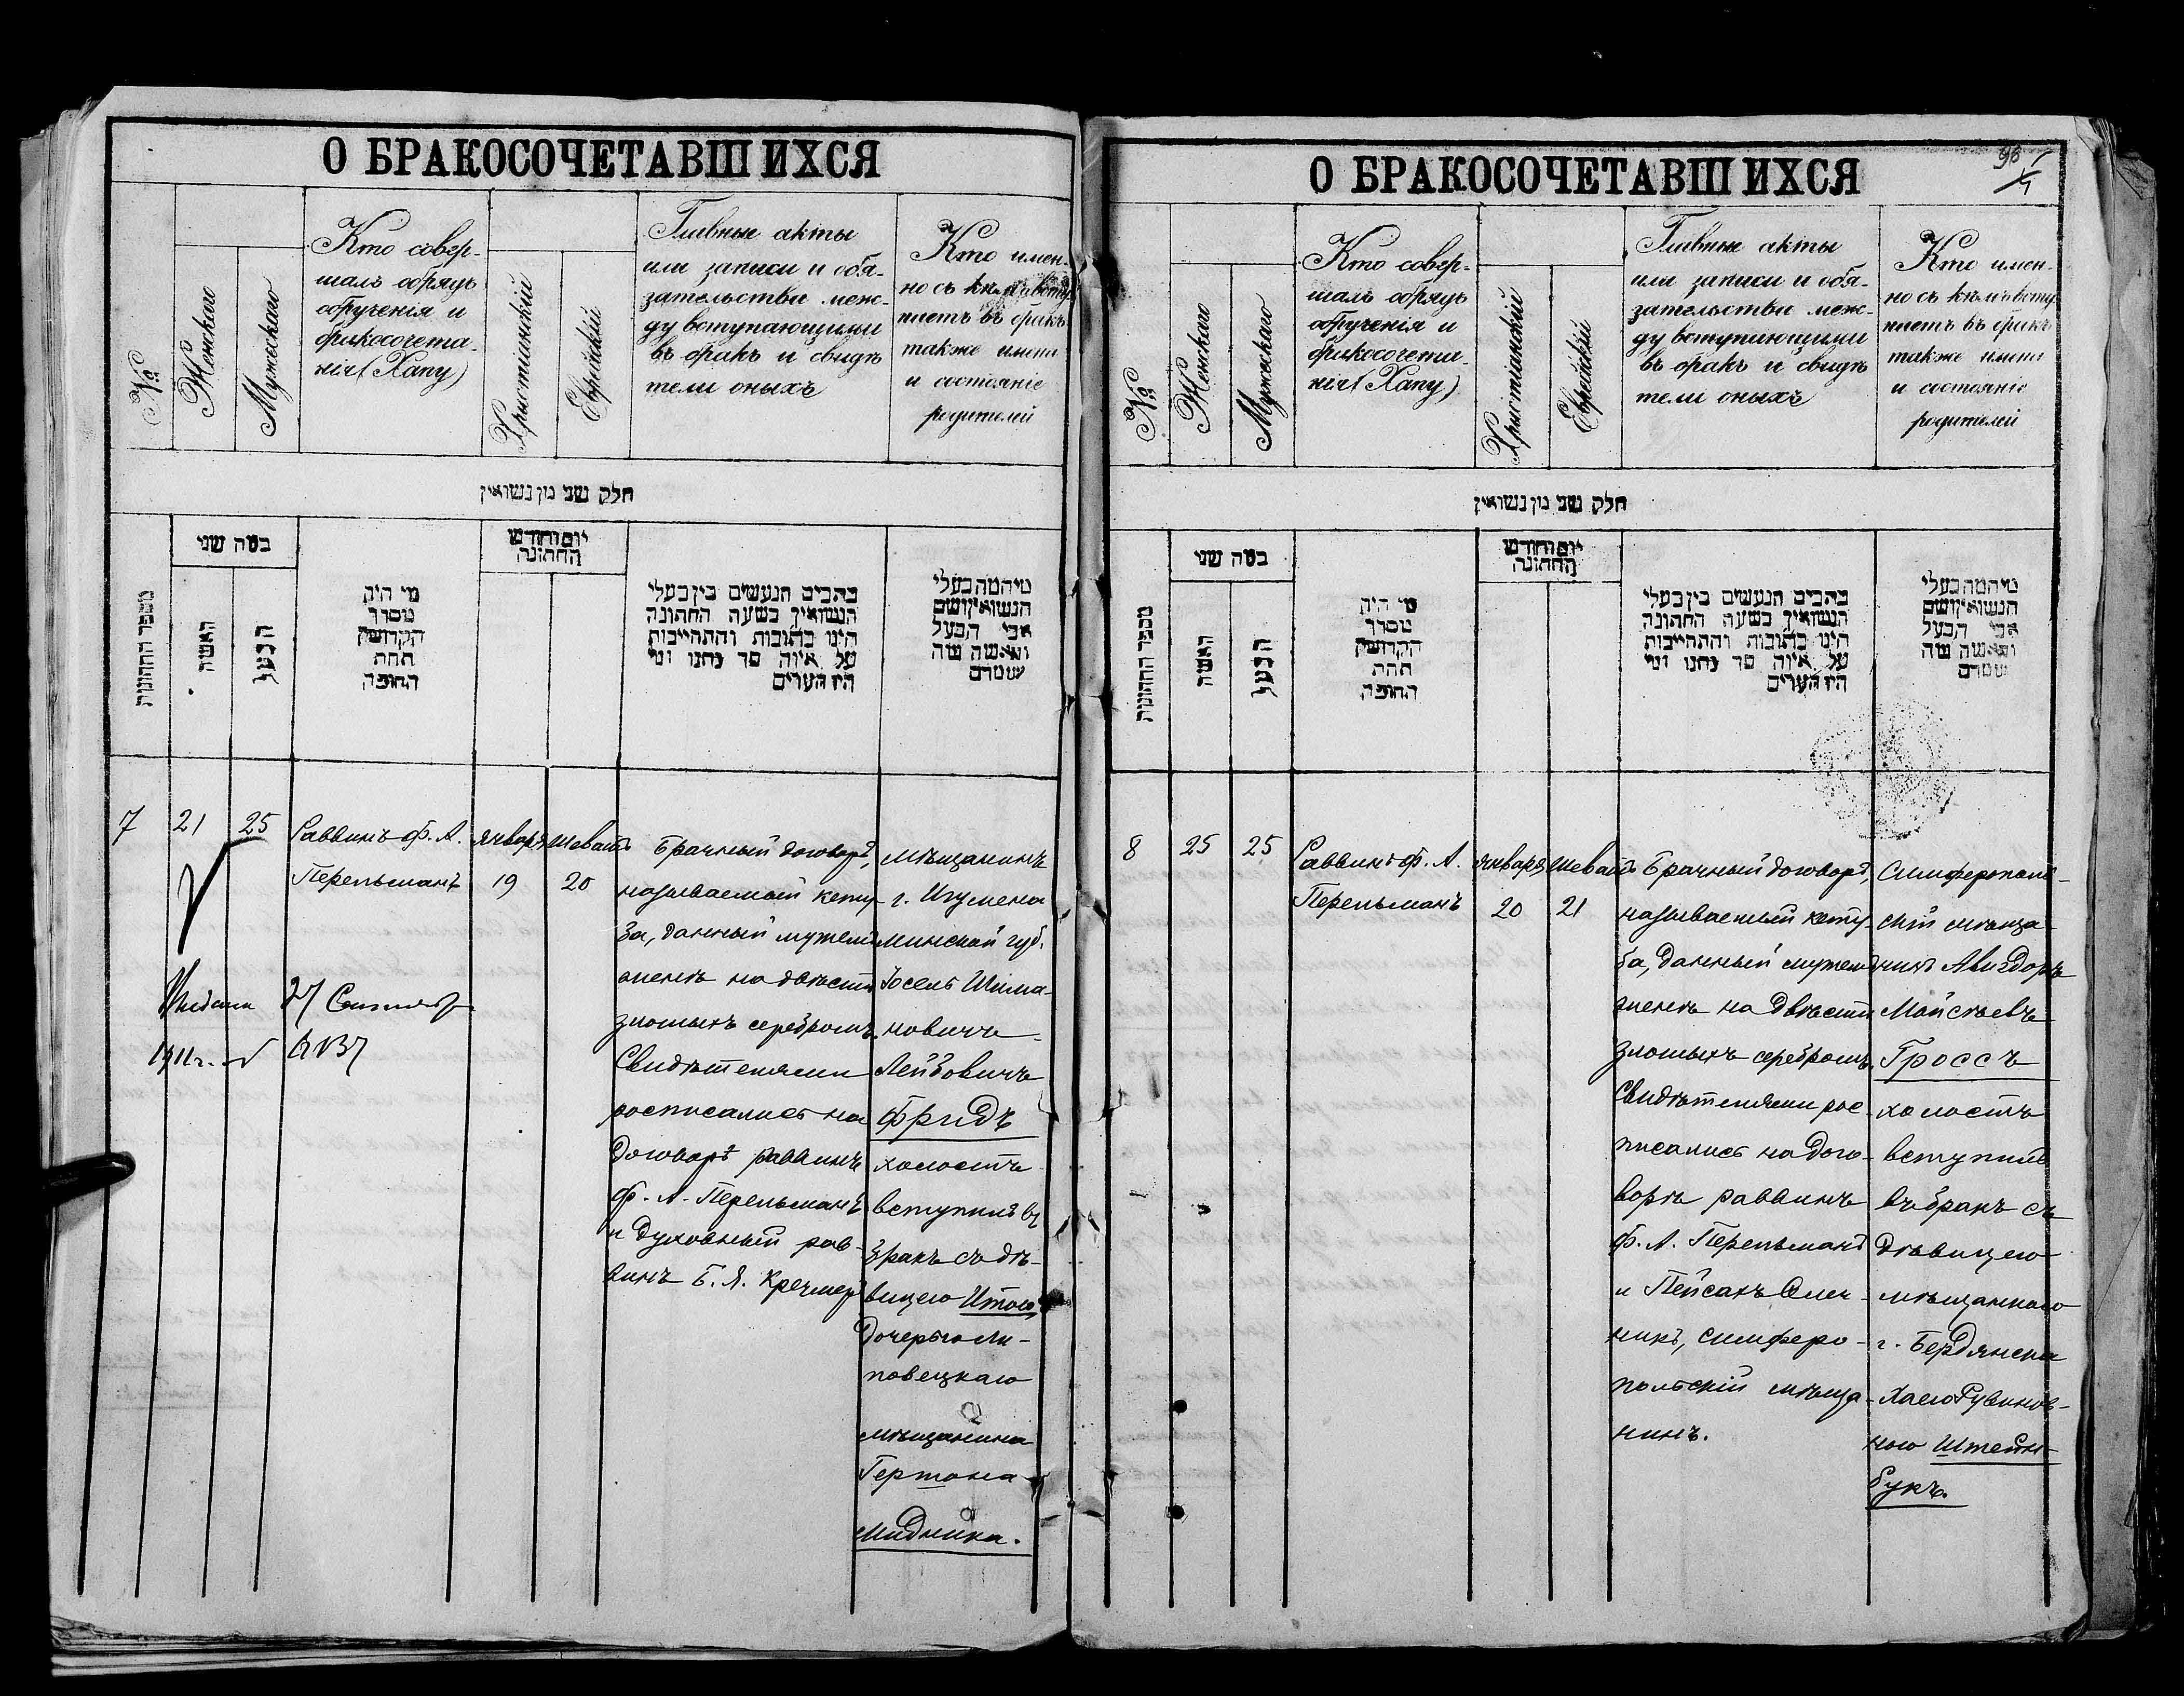 О БРАКОСОЧЕТАВШИХСЯ
№
Женскаго
Мужескаго
Кто совер-
шалъ обрядъ
обрученія и
бракосочета-
нія (Хапу)
Христіанскій
Еврейскій
Главные акты
или записи и обя-
зательства меж-
ду вступающими
въ бракъ и свидѣ
тели оныхъ
Кто имен-
но съ кѣмъ всту
паетъ въ бракъ
также имена
и состояніе
родителей
חלק שני מן נשואין
מספר החתונות
כמה שני
האשה
הבעל
מי היה
מסדר
הקדושין
תחת
החופה
יום וחודש
החתונה
כתבים הנעשים בין בעלי
הנשואין בשעה החתונה
היינו כתובות והתחייבות
על איזה סך נתנו ומי
היו העדים
מי המה בעלי
הנשואין ושם
אבי הבעל
והאשה מה
7
21
25
Раввинъ Ф. А.
Перельманъ
Января
19
Шевата
20
Брачный договоръ,
называемый кету-
ба, данный мужемъ
женѣ на двѣсти
злотыхъ серебромъ.
Свидѣтелями
росписались на
договорѣ раввинъ
Ф. А. Перельманъ
и духовный рав-
винъ Б. Я. Кречмеръ
мѣщанинъ
г. Игумена
Минской губ.
Іосель Шима-
новичъ
Лейбовичъ
Фридъ
холостъ
вступилъ въ
бракъ съ дѣ-
вицею Итою,
дочерью Ли-
повецкаго
мѣщанина
Гершона
Мидника.
27
1911г.
О БРАКОСОЧЕТАВШИХСЯ
96
№
Женскаго
Мужескаго
Кто совер-
шалъ обрядъ
обрученія и
бракосочета-
нія (Хапу)
Христіанскій
Еврейскій
Главные акты
или записи и обя-
зательства меж-
ду вступающими
въ бракъ и свидѣ
тели оныхъ
Кто имен-
но съ кѣмъ всту
паетъ въ бракъ
также имена
и состояніе
родителей
חלק שני מן נשואין
מספר החתונות
כמה שני
האשה
הבעל
מי היה
מסדר
הקדושין
תחת
החופה
יום וחודש
החתונה
כתבים הנעשים בין בעלי
הנשואין בשעה החתונה
היינו כתובות והתחייבות
על איזה סך נתנו ומי
היו העדים
מי המה בעלי
הנשואין ושם
אבי הבעל
והאשה מה
8
25
25
Раввинъ Ф. А.
Перельманъ
Января
20
Шевата
21
Брачный договоръ,
называемый кету-
ба, данный мужемъ
женѣ на двѣсти
злотыхъ серебромъ.
Свидѣтелями рос-
писались на дого-
ворѣ раввинъ
Ф. А. Перельманъ
и Пейсахъ Олей-
никъ, симферо-
польскій мѣща-
нинъ.
Симферополь-
скій мѣща-
нинъ Авигдоръ
Мойсѣевъ
Гроссъ
холостъ
вступилъ
въ бракъ съ
дѣвицею
мѣщанкою
г. Бердянска
Хаею Рувинов-
ною Штейн-
букъ.